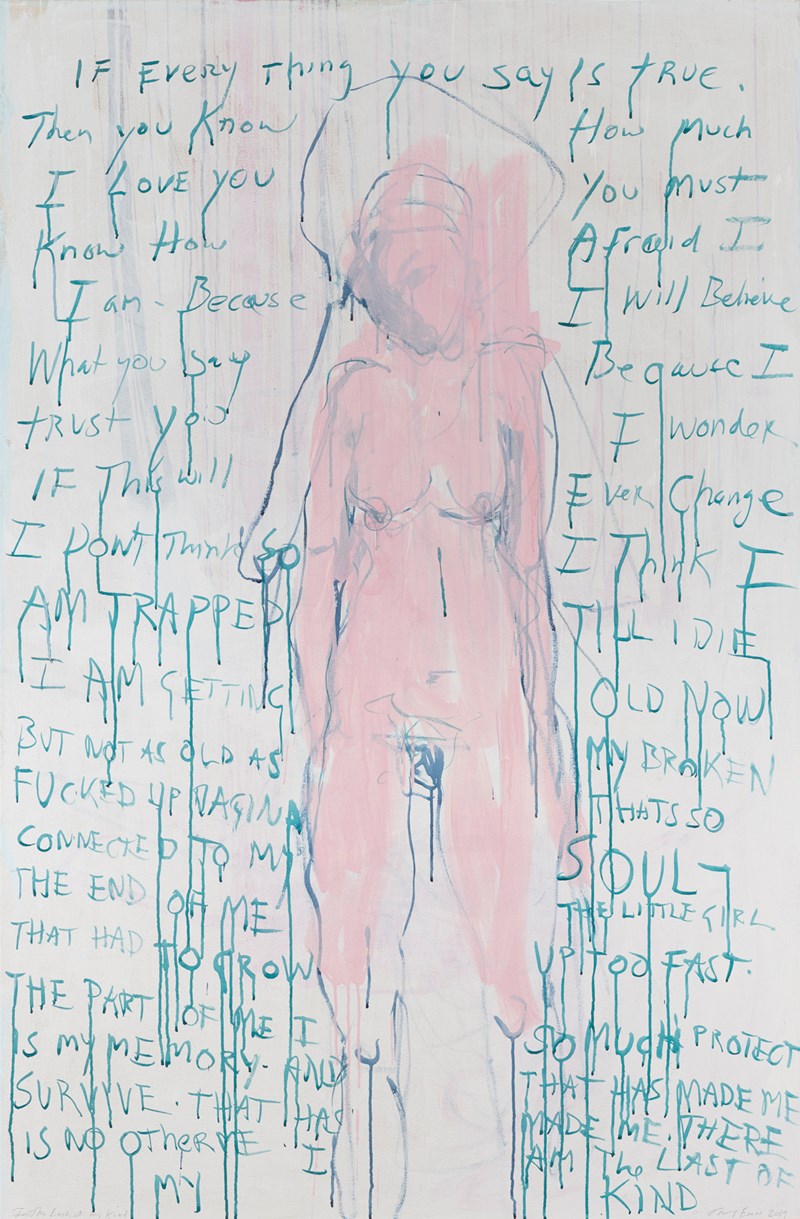 IF Every Thing you say Is tRUE.
Then you Know How Much
I LOVE you You Must
Know How Afraid I
I am - Because I Will Believe
What you Say Because I
tRUST you I wonder
IF This will Ever Change
I DON'T Think So I Think I
AM TRAPPED TILL I DIE
I AM GETTING OLD NOW
BUT NOT AS OLD AS MY BROKEN
FUCKED UP VAGINA THATS SO
CONNECTED TO MY SOUL -
THE END OF ME THE LITTLE GIRL
THAT HAD TO GROW UP TOO FAST.
THE PART OF ME I SO MUCH PROTECT
IS MY MEMORY. AND THAT HAS MADE ME
SURVIVE. THAT HAS MADE ME. THERE
IS NO OTHER ME. I AM The LAST OF
MY KIND
Last of my Kind 2019